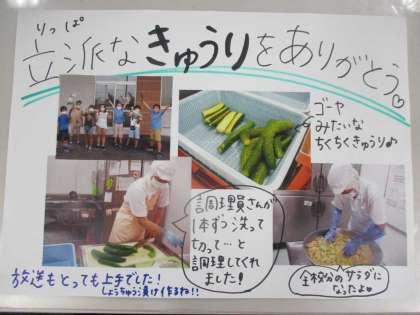 りっぱ
立派なきゅうりをありがとう♡
ゴーヤ
みたいな
ちくちくきゅうり♪
調理員さんが
1本ずつ洗って
切って…と
調理してくれ
ました!
全校分のサラダに
なったよ♥
放送もとっても上手でした!
しょうちゅう漬け作るね!!